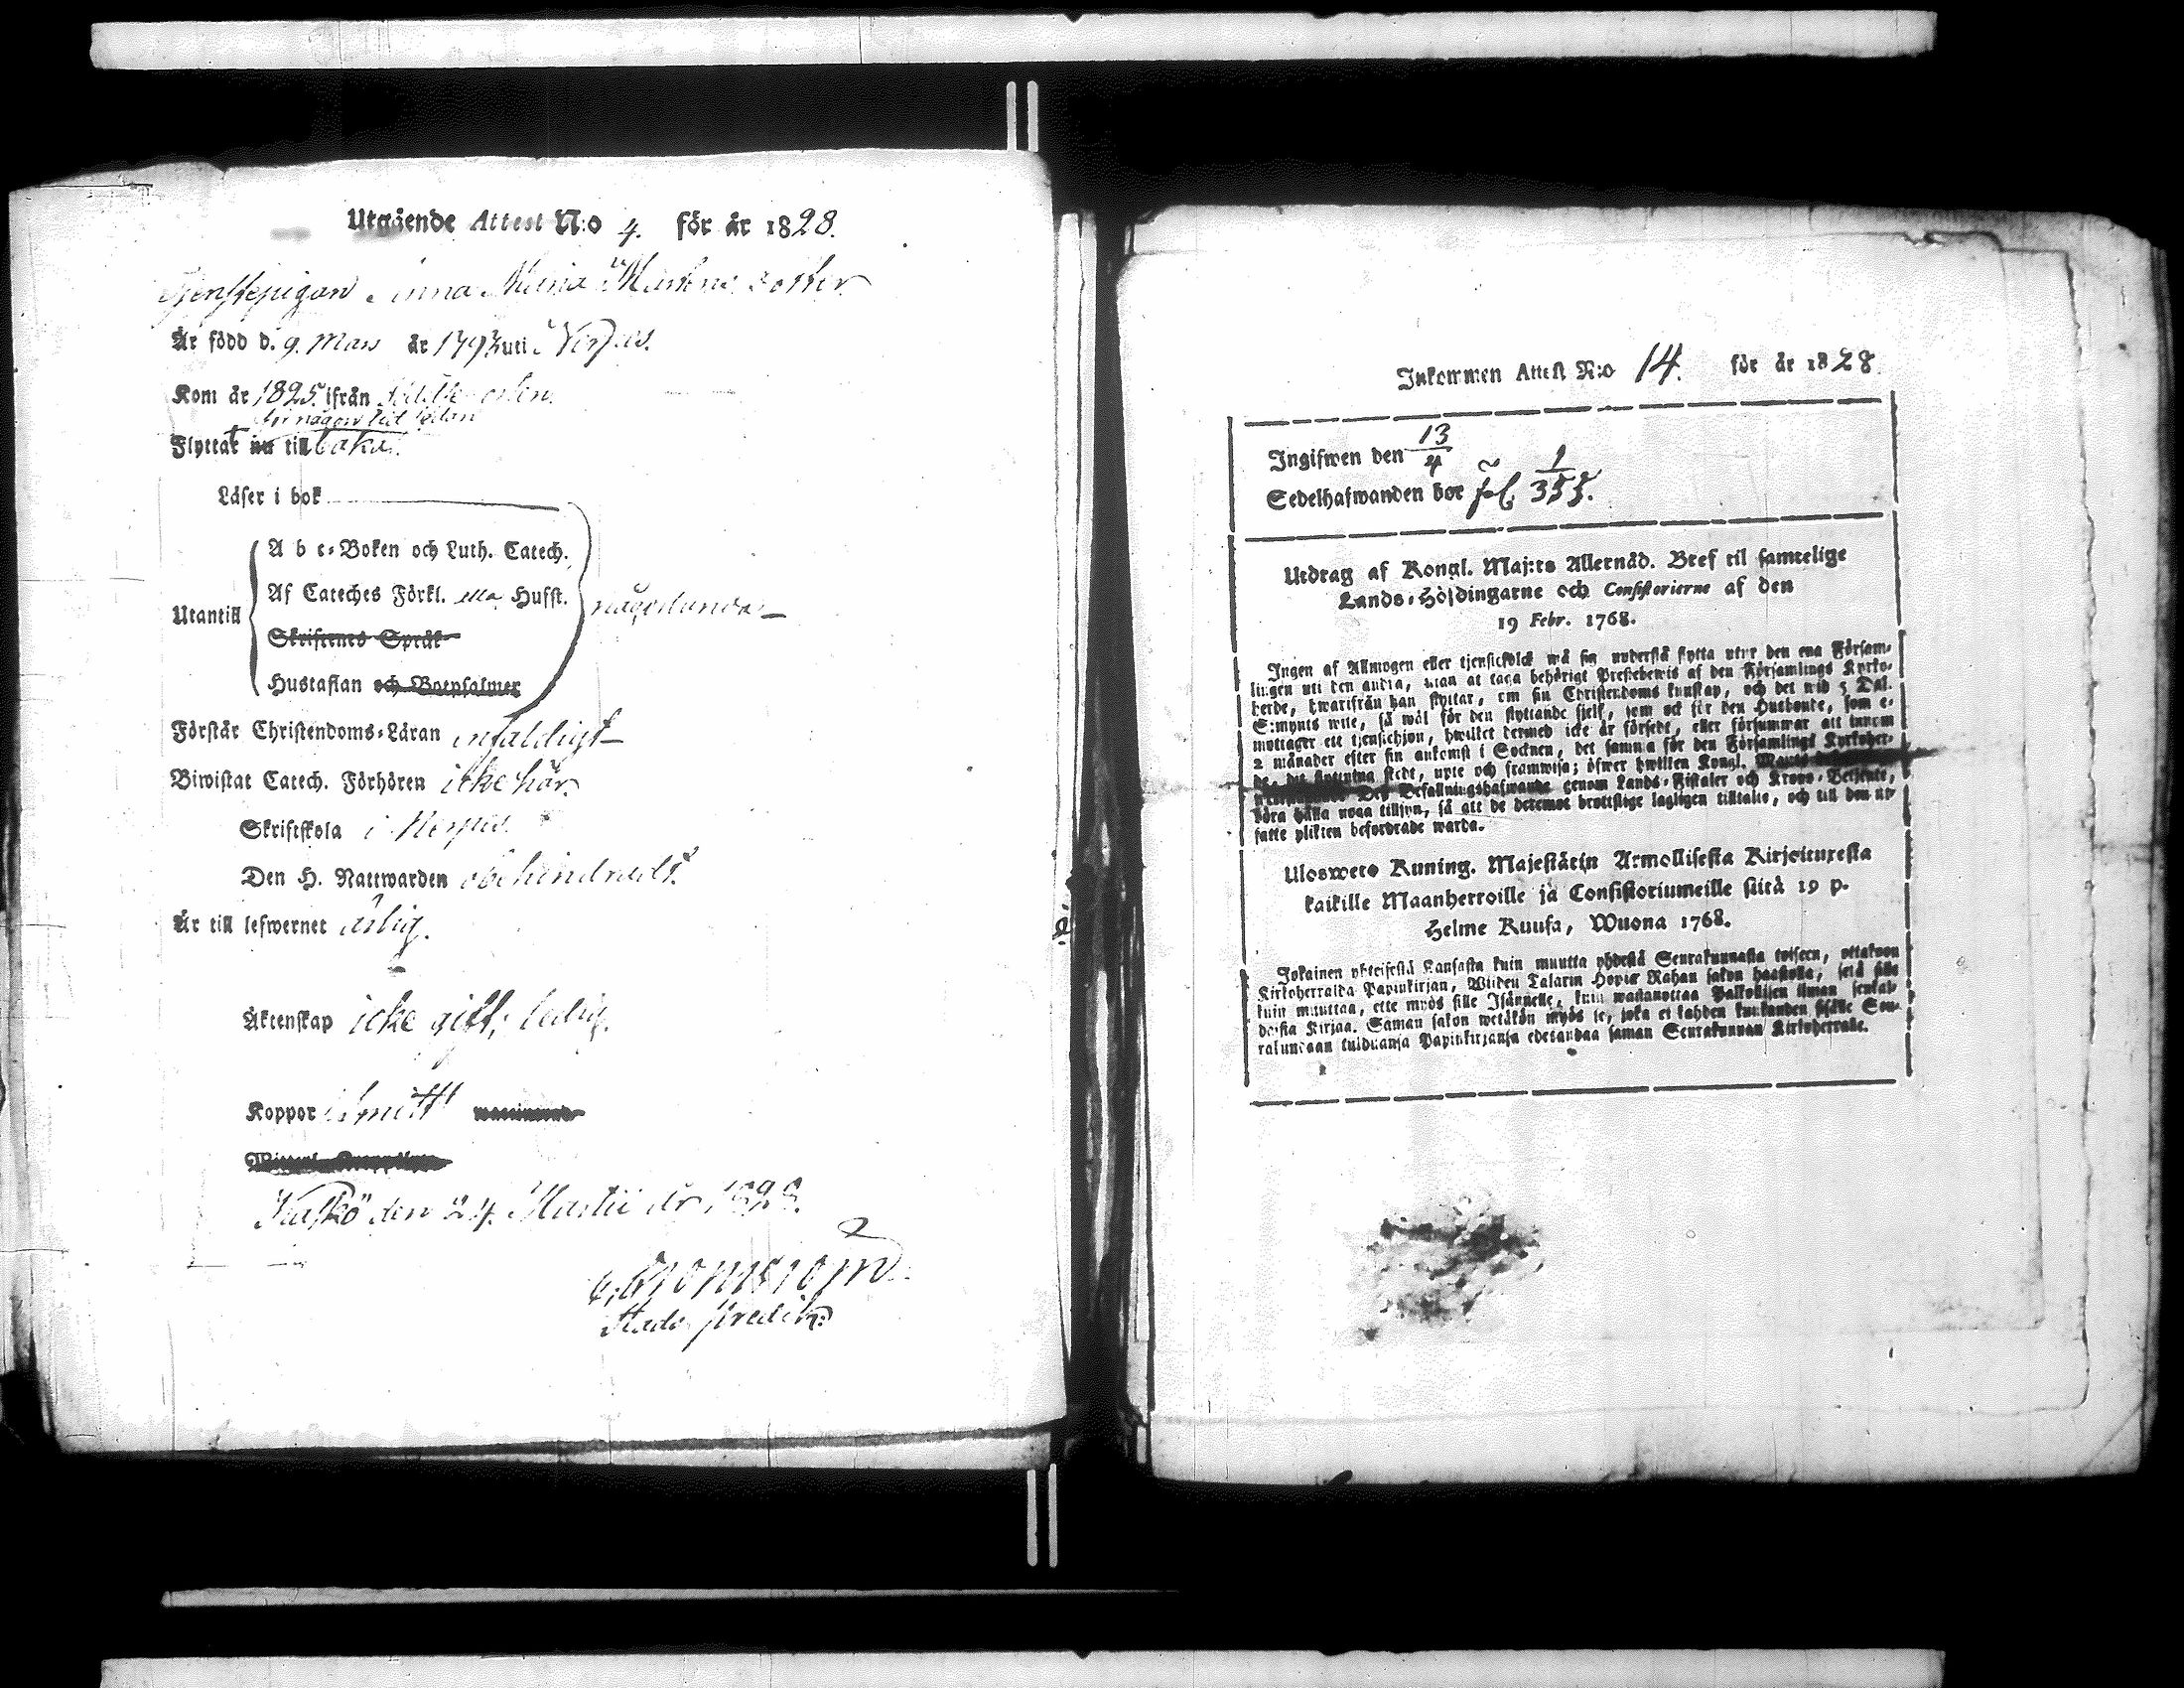 Utgående Attest N:o 4. för år 1828.
Tjenstepigan Anna Maria Mårtens dotter
Är född d. 9. Mars år 1793 uti
Kom år 1825. ifrån
för någon tid sedan
Flyttat nu till baka.
Läser i bok
A b c-Boken och Luth. Catech.
Af Cateches Förkl. Husst.
Utantill
någorlunda
Skriftenes Språk
Hustaflan och Botpsalmer
Förstår Christendoms-Läran enfaldigt
Biwistat Catech. Förhören icke här.
Skriftskola i
Den H. Nattwarden obehindradt.
Är till lefwernet ärlig.
Äktenskap icke gift; ledig.
Koppor
Kaskö den 24. Martii år 1828.
Stads predik:
Inkommen Attest N:o 14. för år 1828
Ingifwen den 13/4
Sedelhafwanden bor fol. 1/355.
Utdrag af Kongl. Maj:ts Allernåd. Bref til samtelige
Lands-Höfdingarne och Consistorierne af den
19 Febr. 1768.
Ingen af Allmogen eller tjenstefolck må sig understå flytta utur den ena Försam-
lingen uti den andra, utan at taga behörigt Prestebewis af den Församlings Kyrko-
herde, hwarifrån han flyttar, om sin Christendoms kunskap, och det wid 5 Dal.
S:mynts wite, så wäl för den flyttande sjelf, som ock för den Husbonde, som e-
mottager ett tjenstehjon, hwilket dermed icke är försedt, eller försummar att innom
2 månader efter sin ankomst i Socknen, det samma för den Församlings Kyrkoher-
de, dit flyttning skedt, upte och framwisa; öfwer hwilken Kongl. Maj:ts
Des Befallningshafwande genom Lands-Fiskaler och Krono-Betjente,
böra hålla noga tillsyn, så att de deremot brottslige lagligen tilltalas, och till den ut-
satte plikten befordrade warda.
Ulosweto Kuning. Majestätin Armollisesta Kirjoituxesta
kaikille Maanherroille ja Consistoriumeille siitä 19 p.
Helme Kuusa, Wuona 1768.
Jokainen yhteisestä Kansasta kuin muutta yhdestä Seurakunnasta toiseen, ottakoon
Kirkoherralda Papinkirjan, Wiiden Talarin Hopia Rahan sakon haastolla, sekä sille
kuin muuttaa, ette myös sille Isännelle, kuin wastanottaa Palkollisen ilman senkal-
daista Kirjaa. Saman sakon wetäkön myös se, joka ei kahden kuukauden sisälle Seu-
rakundaan tulduansa Papinkirjansa edesandaa saman Seurakunnan Kirkoherralle.